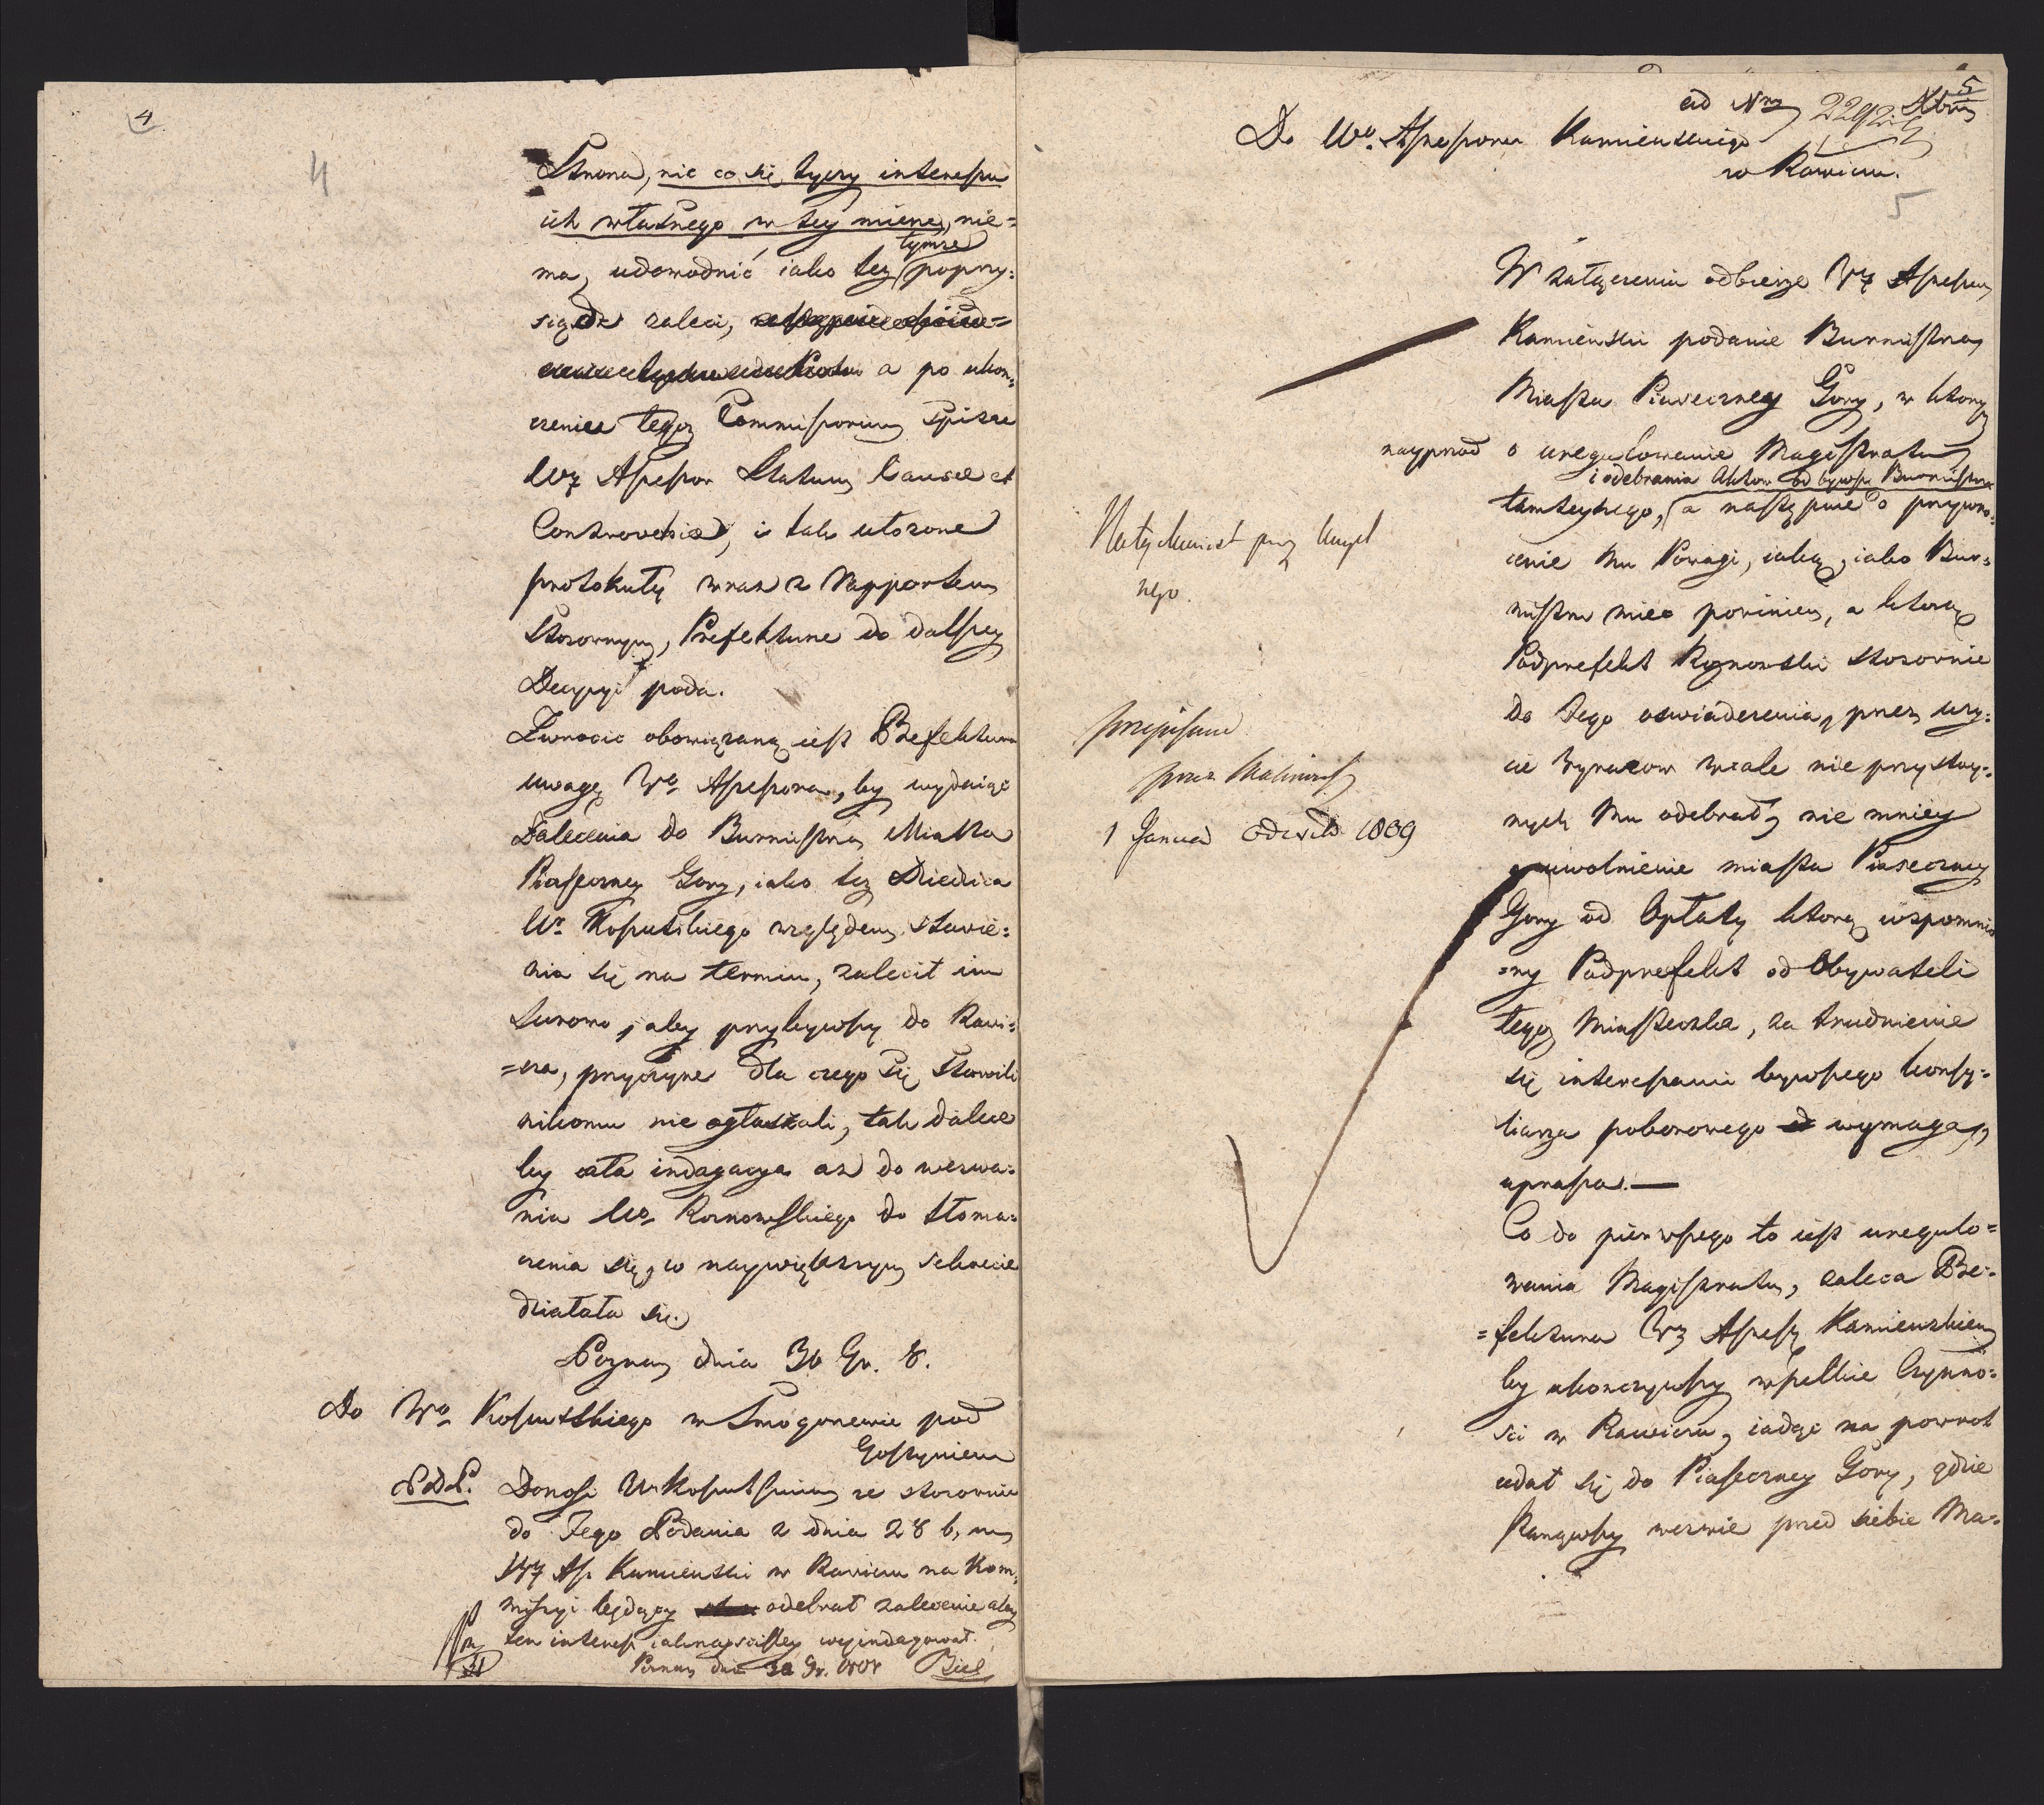 4
4
Strona, nic co się tyczy interessu
ich własnego w tey mierze, nie=
tymże
ma, udowodnić iako tez poprzy:
siądz zaleci,
a po ukon:
czeniu tegoz Commissorium spisze
Wz Assessor Statum Causae et
Controversiae, i tak ułozone
protokuły wraz z Rapportem
Stosownym, Prefekturze do dalszey
Decyzyi poda.
Zwrocic obowiązaną iest Prefektura
uwagę Wo Assessora, by wydaiąc
Zalecenia do Burmistrza Miasta
Piaseczney Gory, iako tez Dziedzica
Wo Koszutskiego względem stawie:
nia się na termin, zalecił im
surowo, aby przybywszy do Rawi:
=cza, przyczyne dla czego się stawili
nikomu nie ogłaszali, tak dalece
by cała indagacya az do wezwa:
nia Wo Roznowskiego do tłoma:
czenia się, w naywiększym sekrecie
działała się.
Poznan dnia 30 Gr. 8.
Do Wo Koszutskiego w Smogorzewie pod
Gostyniem
P.d.P. Donosi Ur Koszutskiemu ze stosownie
do Jego Podania z dnia 28 b. m.
Wz Ass Kamienski w Rawiczu na Kom:
missyi będący odebrał zalecenie aby
ten interes iaknayscisley wyindagował.
Poznan dnia 30 Gr. 1808
ad Nro 2292
5
Do Wo. Assessora Kamienskiego
w Rawiczu.
5
W załączeniu odbierze Wz Assessor
Kamienski podanie Burmistrza
Miasta Piaseczney Gory, w ktorym
nayprzod o uregulowanie Magistratu
i odebrania Aktow od bywsz. Burmistrza
tamteyszego, a następnie o przywro:
cenie mu Powagi, iaką, iako Bur:
mistrz miec powinien, a ktorą
Podprefekt Roznowski stosownie
do Jego oswiadczenia, przez uzy:
cie Wyrazow wcale nie przystoy:
nych mu odebrał, nie mniey
o uwolnienie miasta Piaseczney
Gory od Opłaty ktorą wspomnio
=ny Podprefekt od Obywateli
tegoz Miasteczka, za trudnienie
się interessami bywszego konsy:
liarza poborowego wymaga,
uprasza. —
Co do pierwszego to iest uregulo=
wania Magistratu, zaleca Pre:
=fektura Wz Assess. Kamienskiemu
by ukonczywszy wszelkie Czynno:
sci w Rawiczu, iadąc na powrot
udał się do Piaseczney Gory, gdzie
stanąwszy wezwie przed siebie Ma:
Natychmiast przy
przepisane
przez
1 Januar 1809